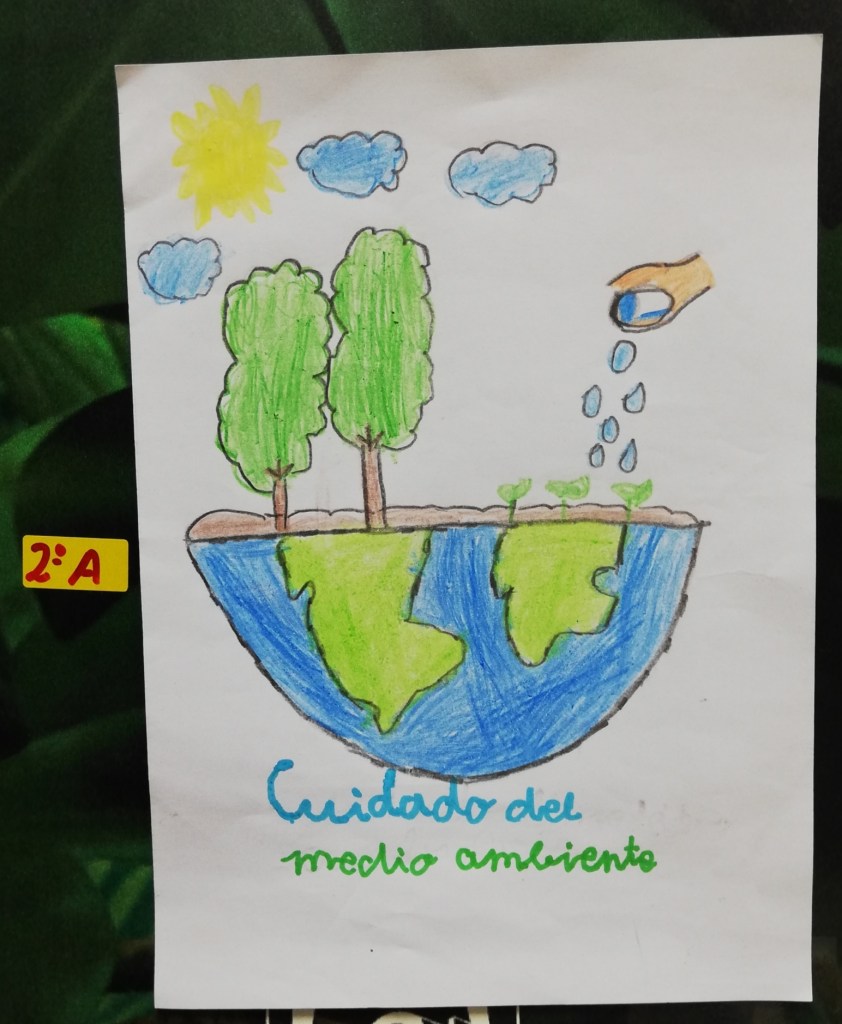 2º A
Cuidado del
medio ambiente